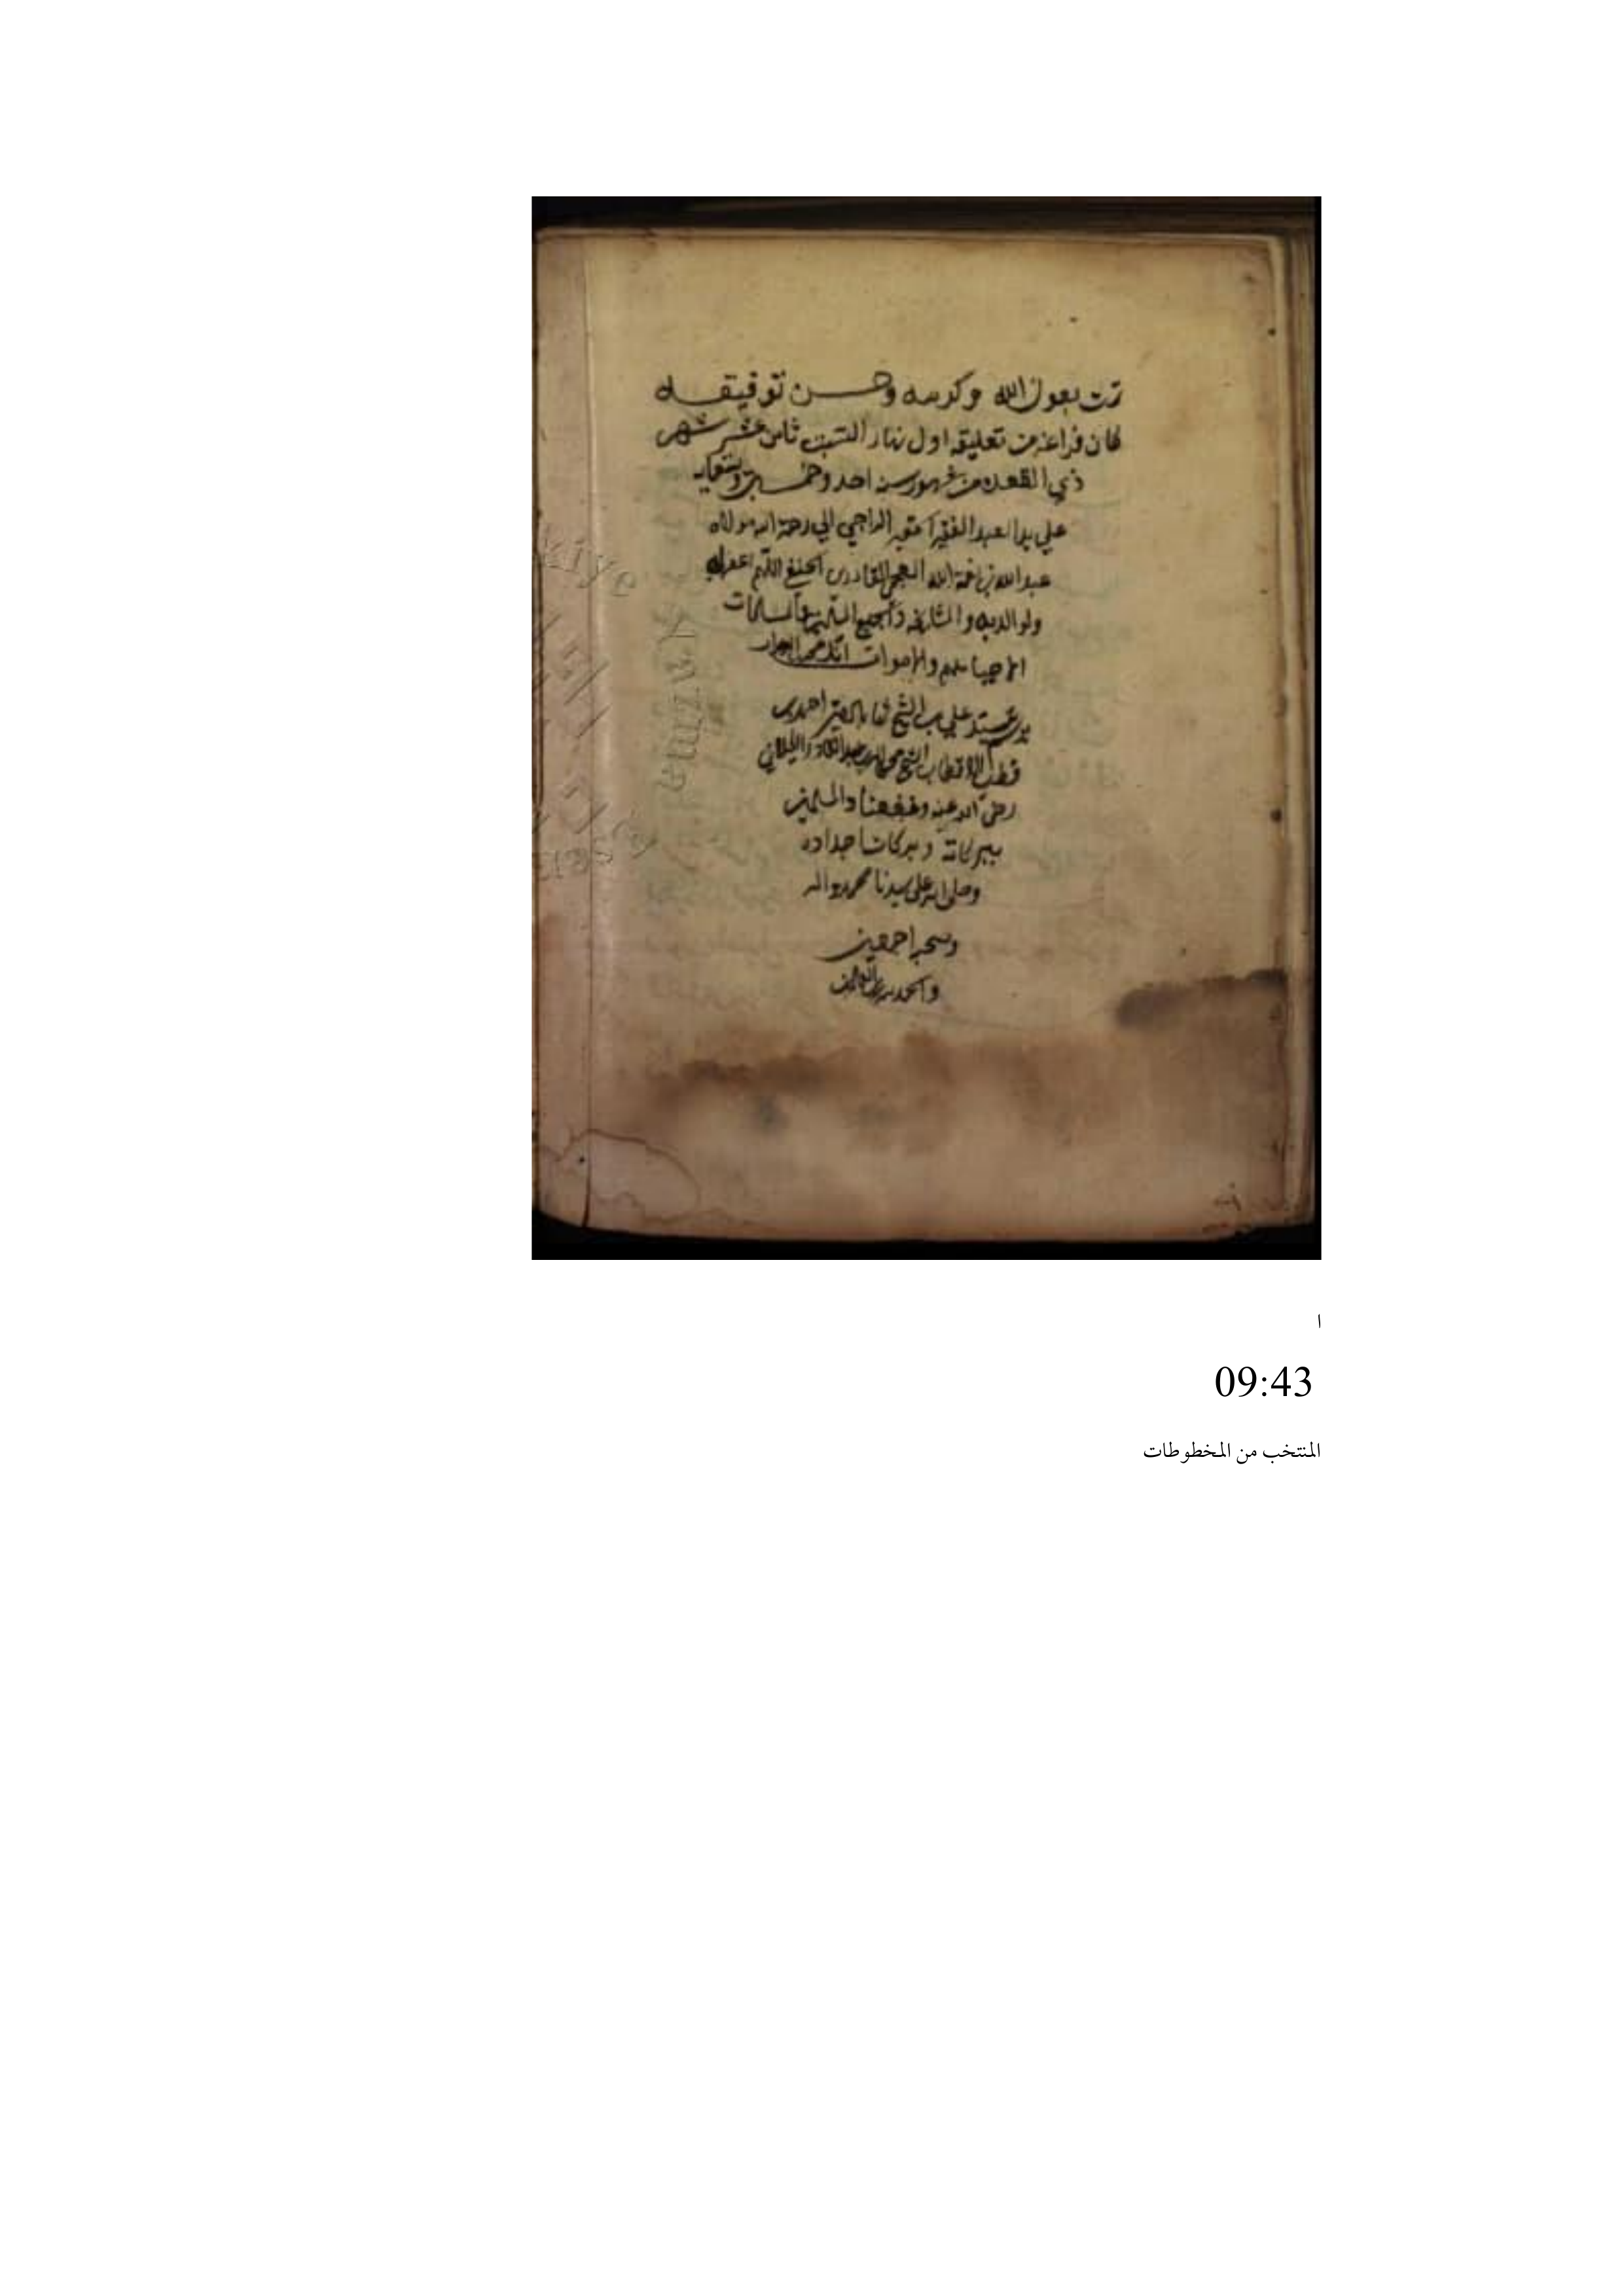 تمت بعون الله وكرمه وحسن توفيقه
كان فراغه من تعليقه اول نهار السبت ثامن عشر شهر
ذي القعده من شهور سنه احد وخمسين وتسعمايه
علي يد العبد الفقير الحقير الراجي الي رحمة الله مولاه
عبد الله بن نعمة الله العجمي القادري الحنفي اللهم اغفر له
ولوالديه ولمشايخه ولجميع المسلمين والمسلمات
الاحيا منهم والاموات
علي الشيخ
قطب الاقطاب الشيخ محي الدين عبد القادر الكيلاني
رضي الله عنه ونفعنا والمسلمين
ببركاته وبركات اجداده
وصلي الله علي سيدنا محمد واله
وصحبه اجمعين
والحمد لله رب العالمين
ا
09:43
المنتخب من المخطوطات